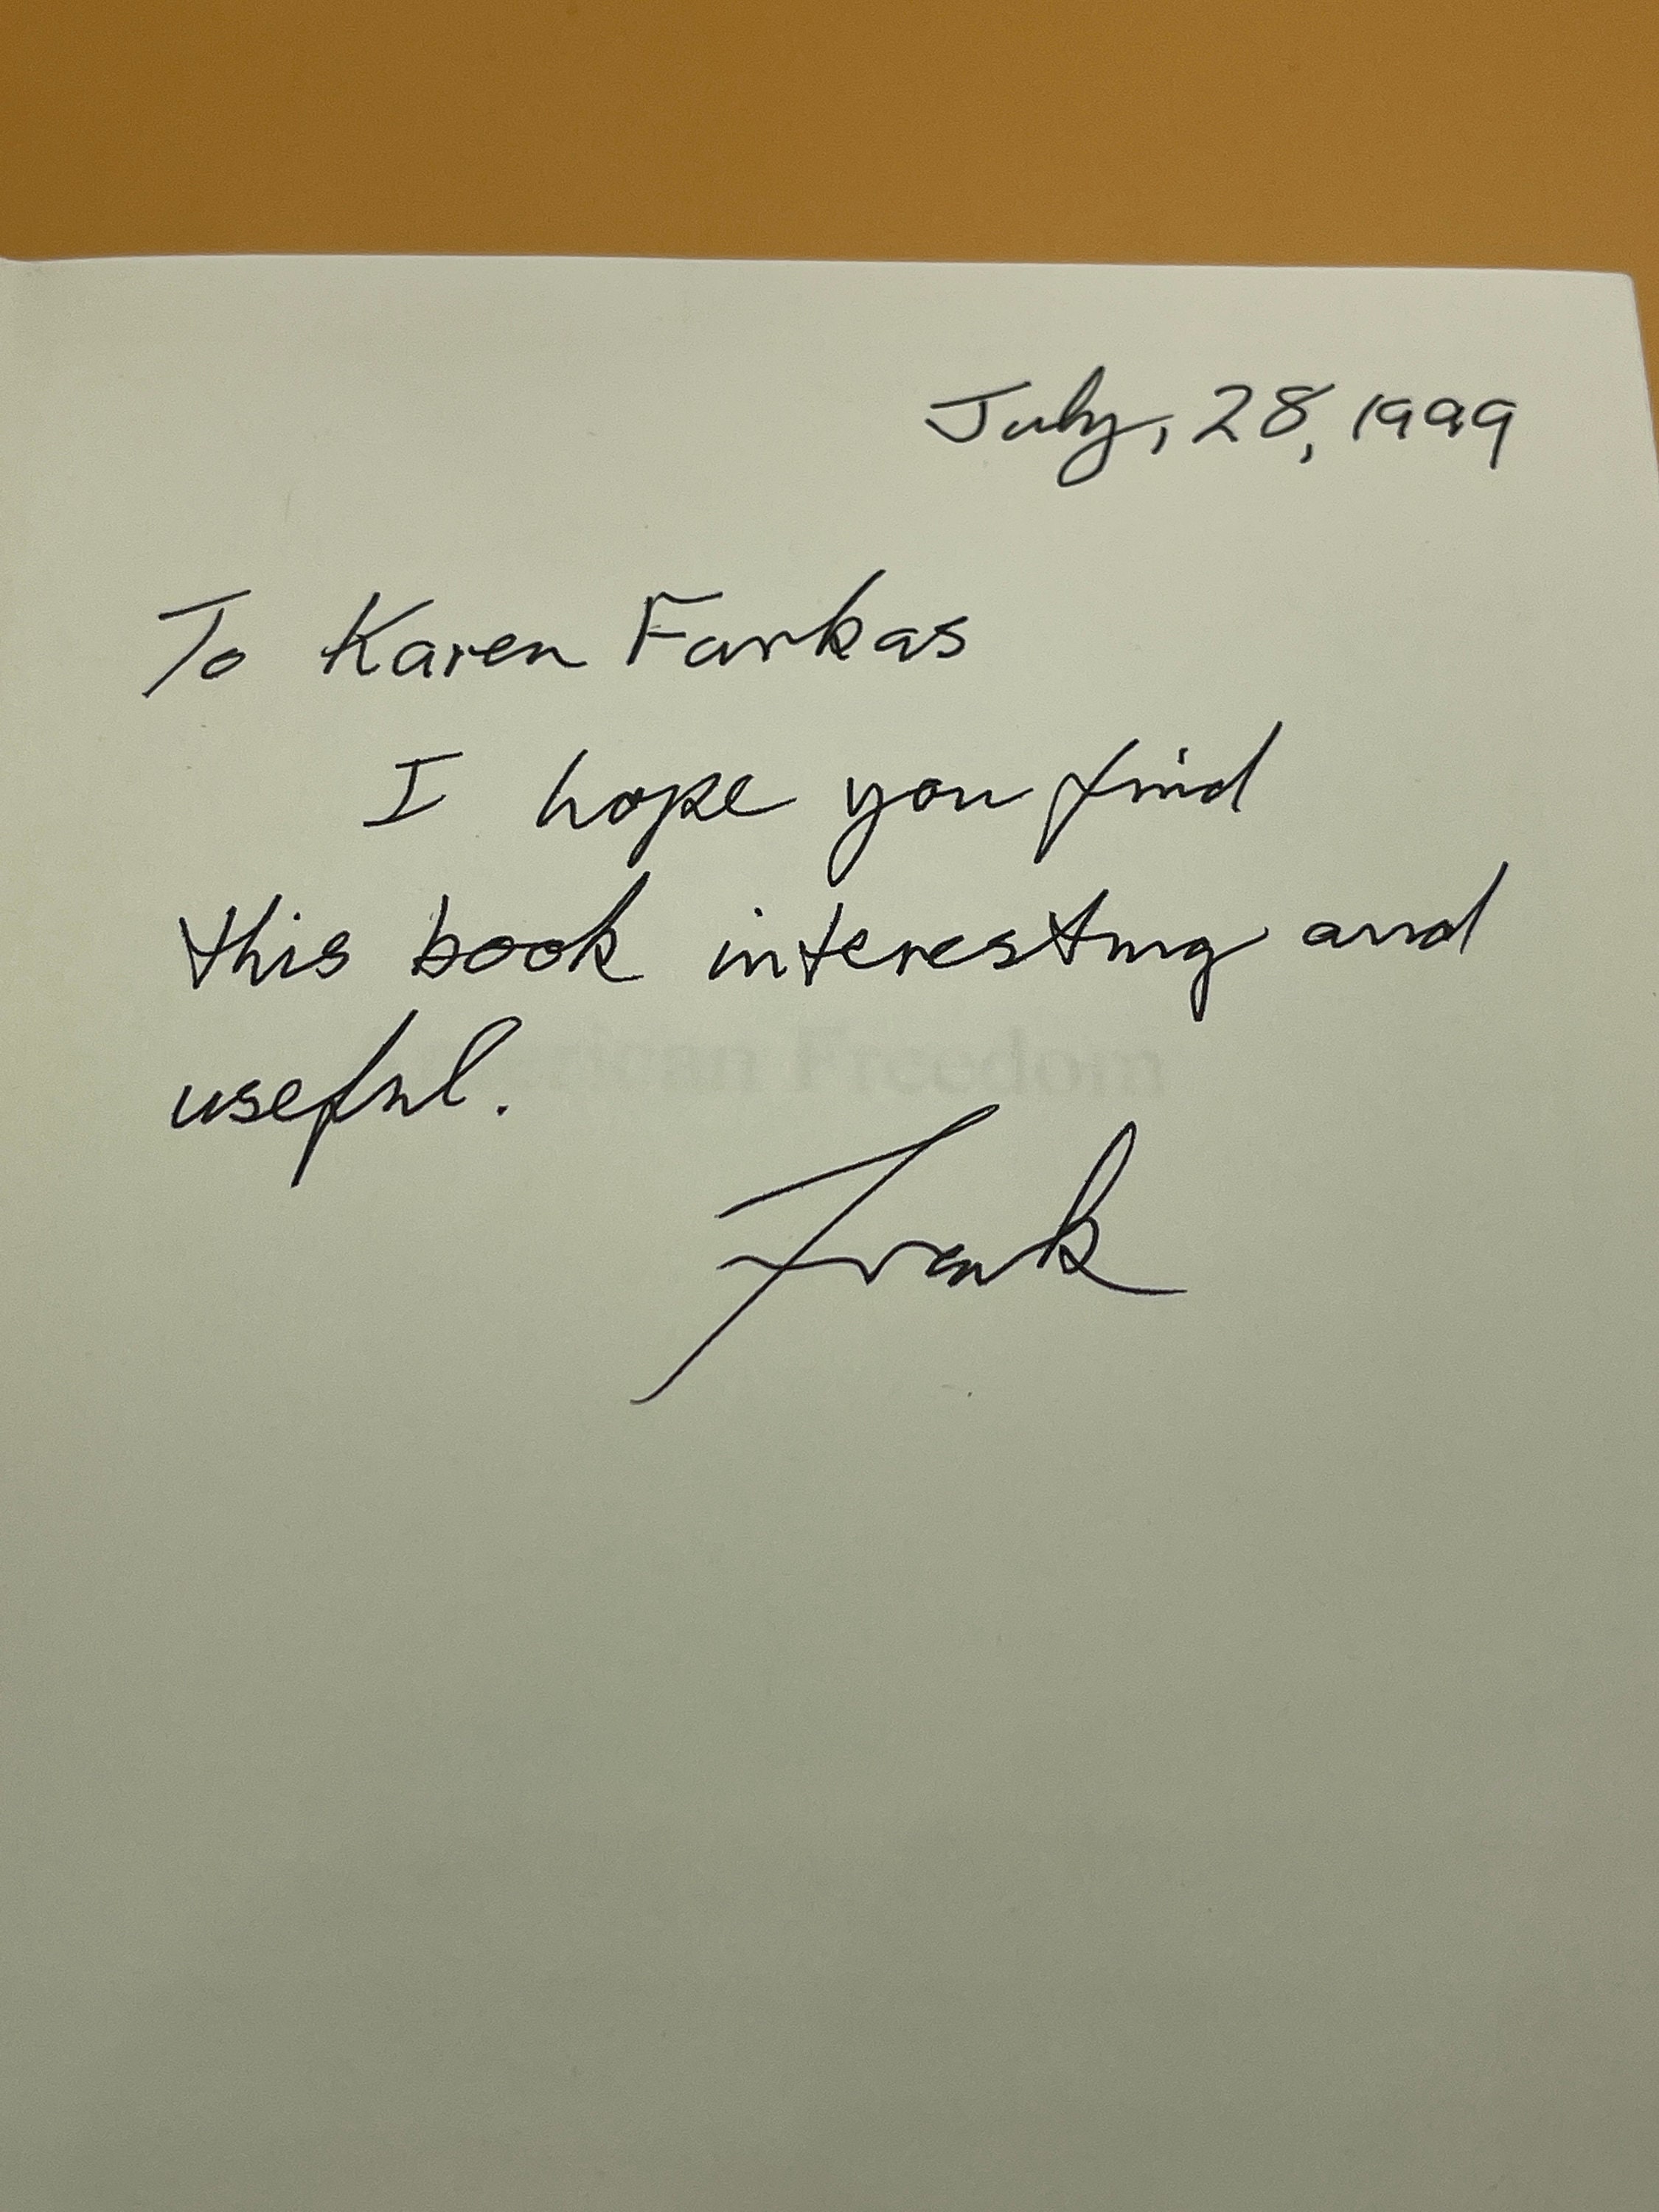 July, 28, 1999
To Karen Farkas
I hope you find
this book interesting and
useful.
Freedom
Frank